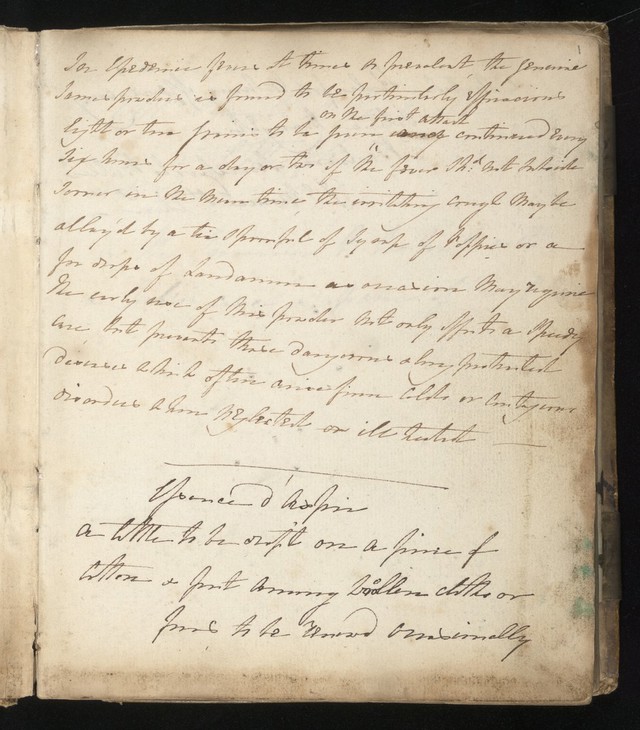 1
For Epedemic fevers at times so prevalent, the Genuine
James powder is found to be particularly efficacious
on the first attack
Eight or ten grains to be given and continued every
Six hours for a day or two if the fever Shd not subside
Sooner in the Mean time, the irritating cough May be
allay'd by a tea Spoonful of Syrup of Poppies or a
few drops of Laudanum as occasion May require
the early use of this powder not only effects a speedy
cure but prevents those dangerous & long protracted
diseases which often arise from Colds or Contagious
disorders when Neglected or ill treated
Essence d'Aspin
a little to be dropt on a piece of
Cotton & put among woollen cloths or
furs to be renewed occasionally